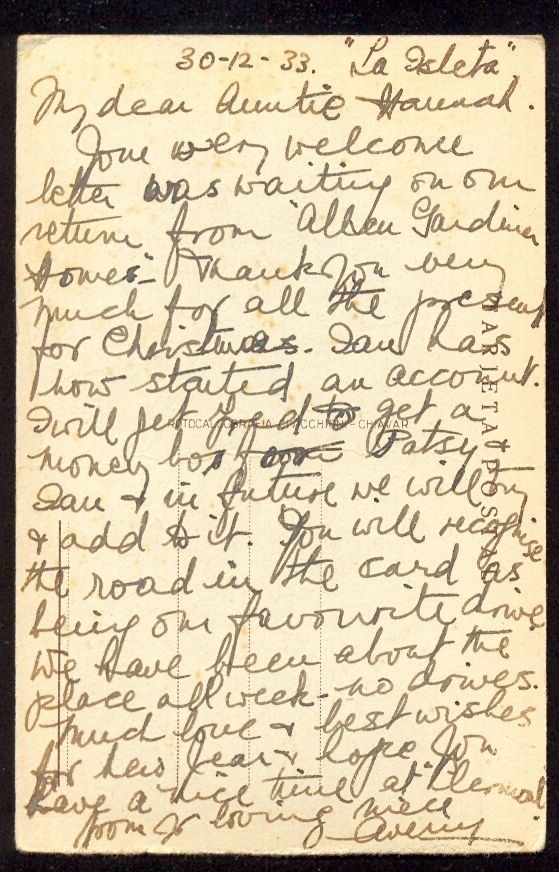 30-12-33. "La Isleta"
My dear Auntie Hannah.
Your very welcome
letter was waiting on our
return from "Albeu Gardiner
Homes". Thank you very
much for all the present
for Christmas. Ian has
now started an account.
I will get Fred to get a
money box for Patsy &
Ian & in future we will try
& add to it. You will recognise
the road in the card as
being our favourite drive
We have been about the
place all week - no drives.
Much love & best wishes
for New Year & hope you
have a nice time at
from yr loving niece
FOTOCALCOGRAFIA CHIAVARI
TARJETA POSTAL